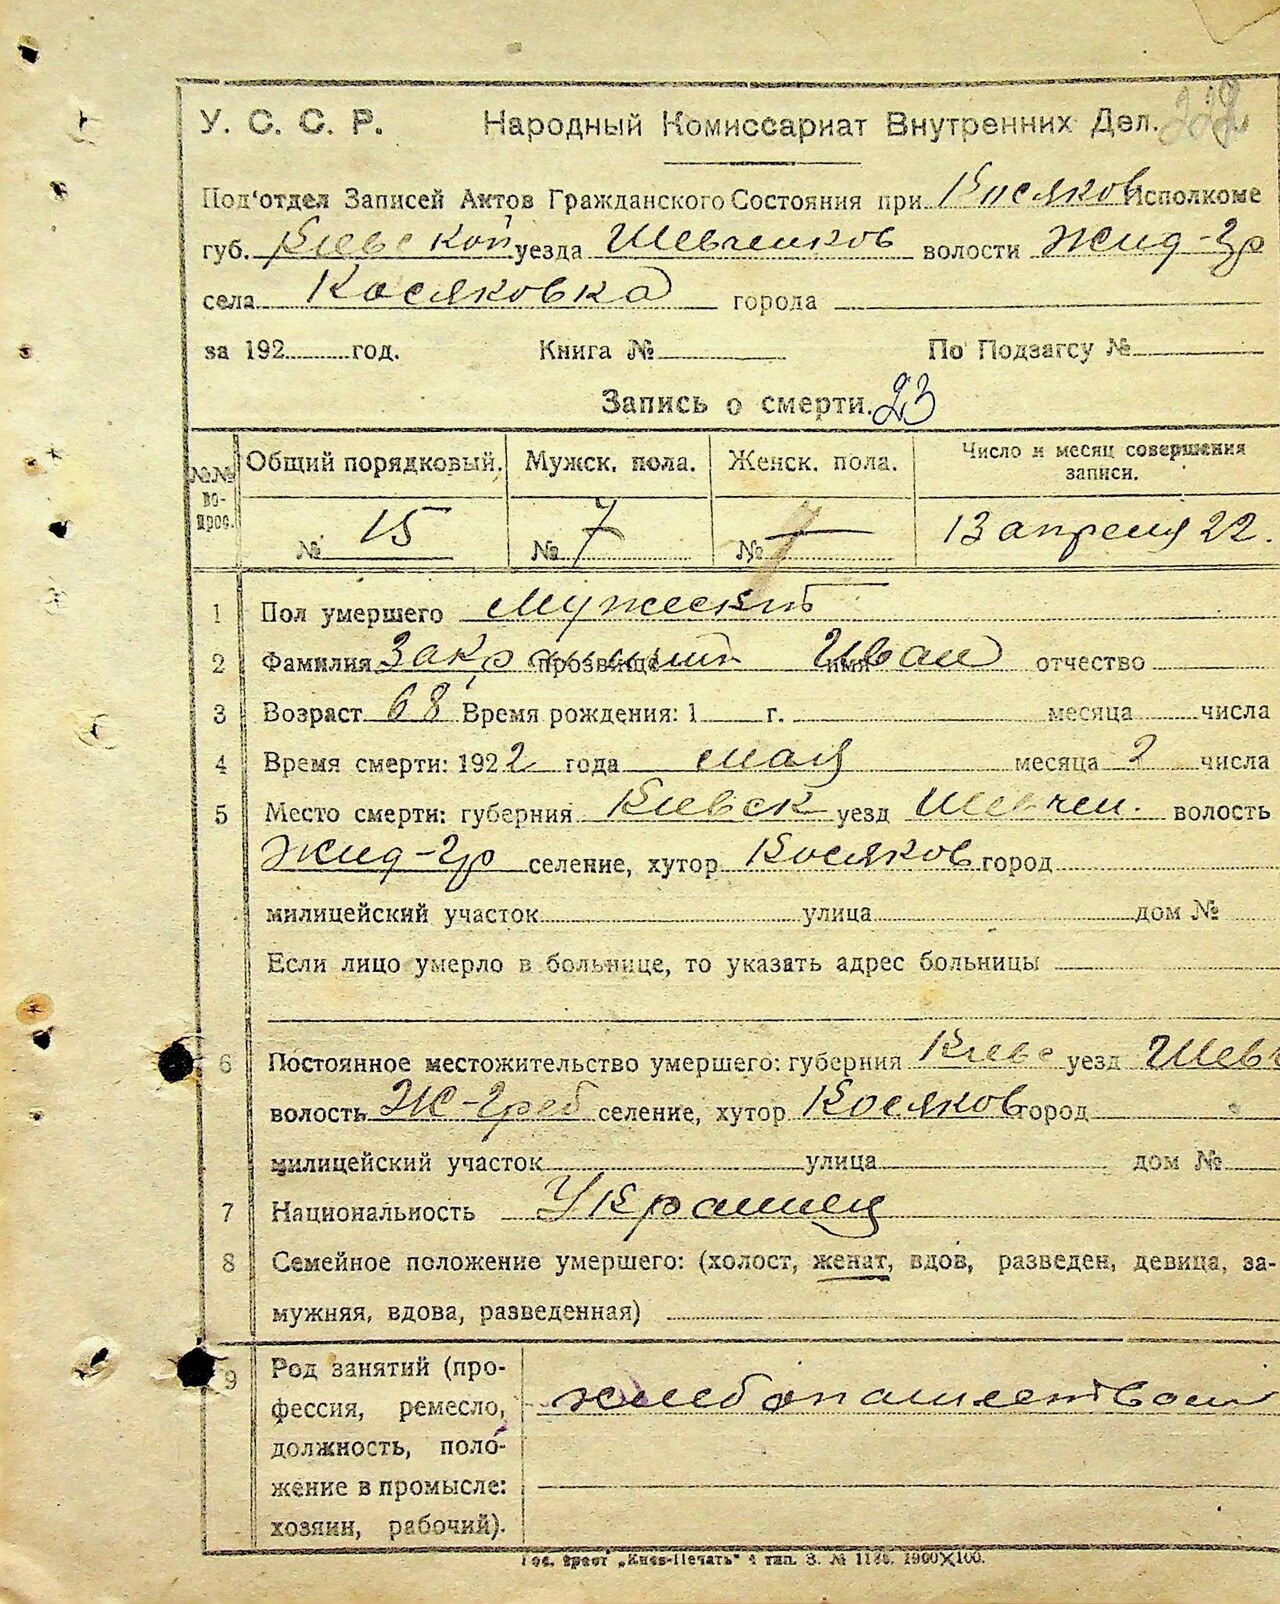 222
У. С. С. Р. Народный Комиссариат Внутренних Дел.
Под'отдел Записей Актов Гражданского Состояния при Косяков Исполкоме
губ. Киевской уезда Шевченков волости Жид-Гр
села Косяковка города
за 192 год. Книга № По Подзагсу №
Запись о смерти. 23
№№ во-прос. Общий порядковый. Мужск. пола. Женск. пола. Число и месяц совершения записи.
№ 15 № 7 № 13 апреля 22.
1 Пол умершего Мужеский
2 Фамилия прозвище имя Иван отчество
3 Возраст 68 Время рождения: 1 г. месяца числа
4 Время смерти: 1922 года мая месяца 2 числа
5 Место смерти: губерния Киевск уезд Шевчен. волость
Жид-Гр селение, хутор Косяков город
милицейский участок улица дом №
Если лицо умерло в больнице, то указать адрес больницы
6 Постоянное местожительство умершего: губерния Киевс уезд Шевч
волость Ж-Греб селение, хутор Косяков город
милицейский участок улица дом №
7 Национальность Украинец
8 Семейное положение умершего: (холост, женат, вдов, разведен, девица, за-
мужняя, вдова, разведенная)
9 Род занятий (про-
фессия, ремесло, хлебопашеством
должность, поло-
жение в промысле:
хозяин, рабочий).
Гос. трест „Киев-Печать“ 4 тип. З. № 1186. 1900×100.